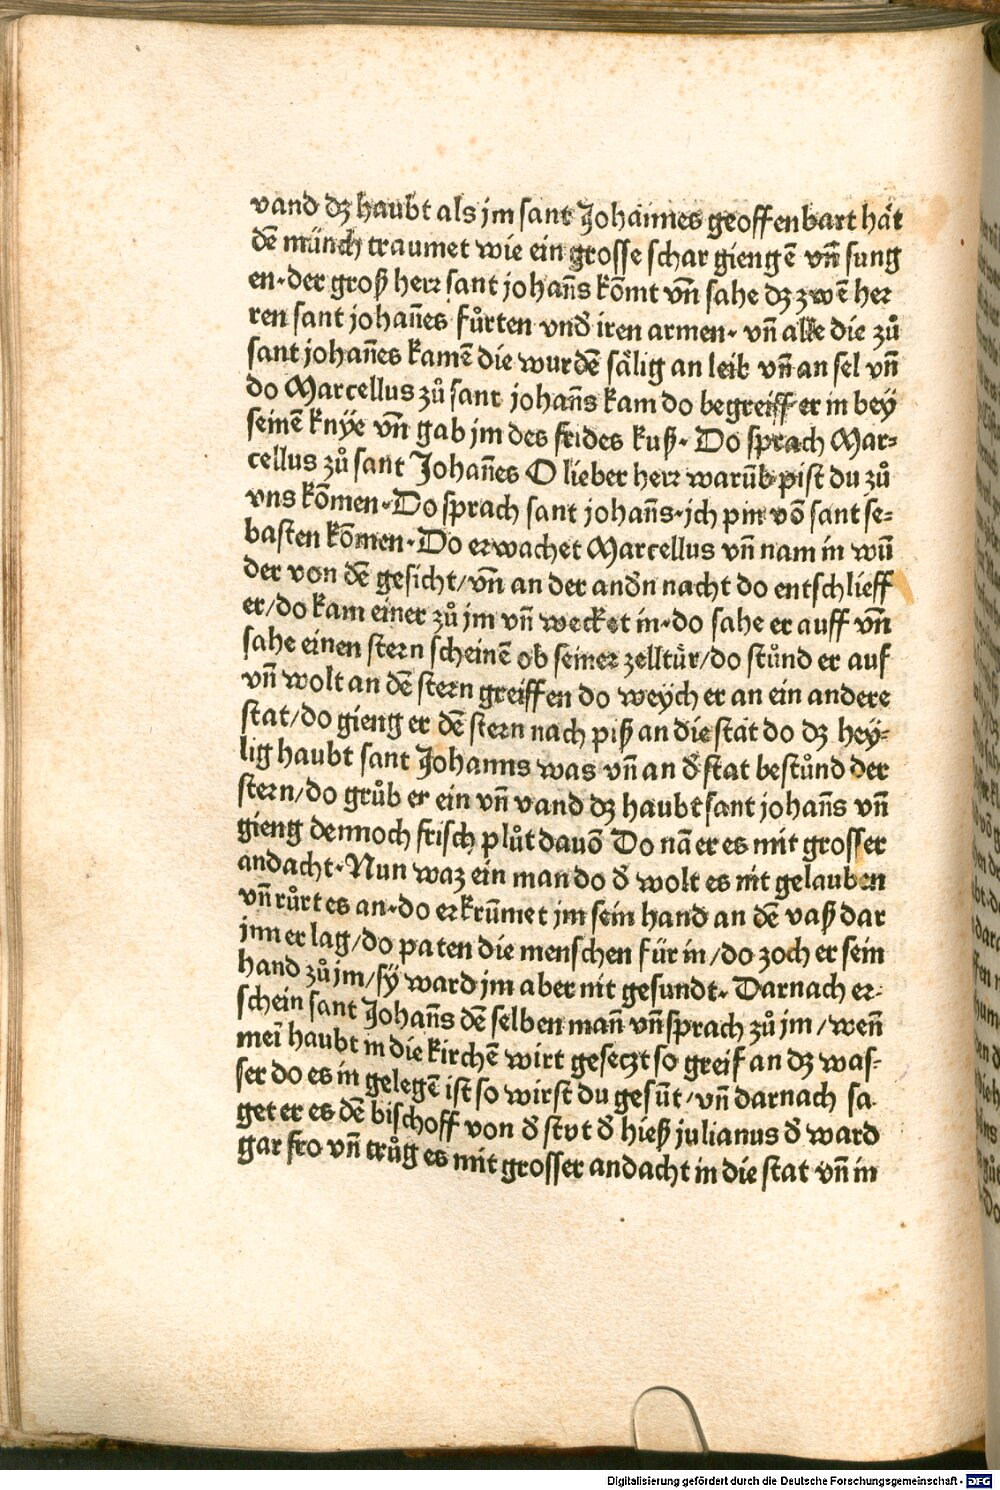 vand dz haubt als jm sant Johannes geoffenbart hät
dē münch traumet wie ein grosse schar giengē vn̄ sung
en·der groß herr sant johan̄s kōmt vn̄ sahe dz zwē her
ren sant johan̄es fůrten vnd̕ iren armen· vn̄ alle die zů
sant johan̄es kamē die wurdē sälig an leib vn̄ an sel vn̄
do Marcellus zů sant johan̄s kam do begreiff er in bey
seinē knye vn̄ gab jm des frides kuß· Do sprach Mar⸗
cellus zů sant Johan̄es O lieber herr warūb pist du zů
vns kōmen·Do sprach sant johan̄s·jch pin vō sant se⸗
basten kōmen·Do erwachet Marcellus vn̄ nam in wū
der von dē gesicht/vn̄ an der and̕n nacht do entschlieff
er/do kam einer zů jm vn̄ wecket in·do sahe er auff vn̄
sahe einen stern scheinē ob seiner zelltür/do stůnd er auf
vn̄ wolt an dē stern greiffen do weych er an ein andere
stat/do gieng er dē stern nach piß an die stat do dz hey⸗
lig haubt sant Johanns was vn̄ an d̕ stat bestůnd der
stern/do grůb er ein vn̄ vand dz haubt sant johan̄s vn̄
gieng dennoch frisch plůt dauō Do nā er es mit grosser
andacht·Nun waz ein man do d̕ wolt es nit gelauben
vn̄ růrt es an·do erkrūmet jm sein hand an dē vaß dar
jnn er lag/do paten die menschen für in/do zoch er sein
hand zů jm/sy ward jm aber nit gesundt· Darnach er⸗
schein sant Johan̄s dē selben man̄ vn̄ sprach zů jm/wen̄
meī haubt in die kirchē wirt gesetzt so greif an dz was⸗
ser do es in gelegē ist so wirst du gesūt/vn̄ darnach sa
get er es dē bischoff von d̕ stat d̕ hieß julianus d̕ ward
gar fro vn̄ trůg es mit grosser andacht in die stat vn̄ in
Digitalisierung gefördert durch die Deutsche Forschungsgemeinschaft - DFG